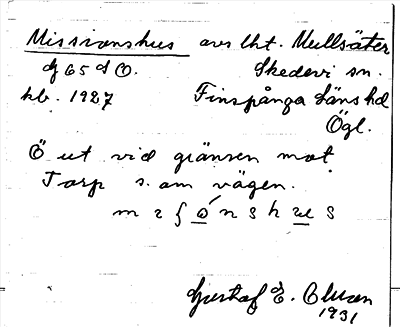 Missionshus avs lht. Mullsäter
Gj 65 d O. Skedevi sn.
hb. 1927 Finspånga läns hd
Ögl.
Ö ut vid gränsen mot
Torp s. om vägen.
Gustaf E. Olsson
1931